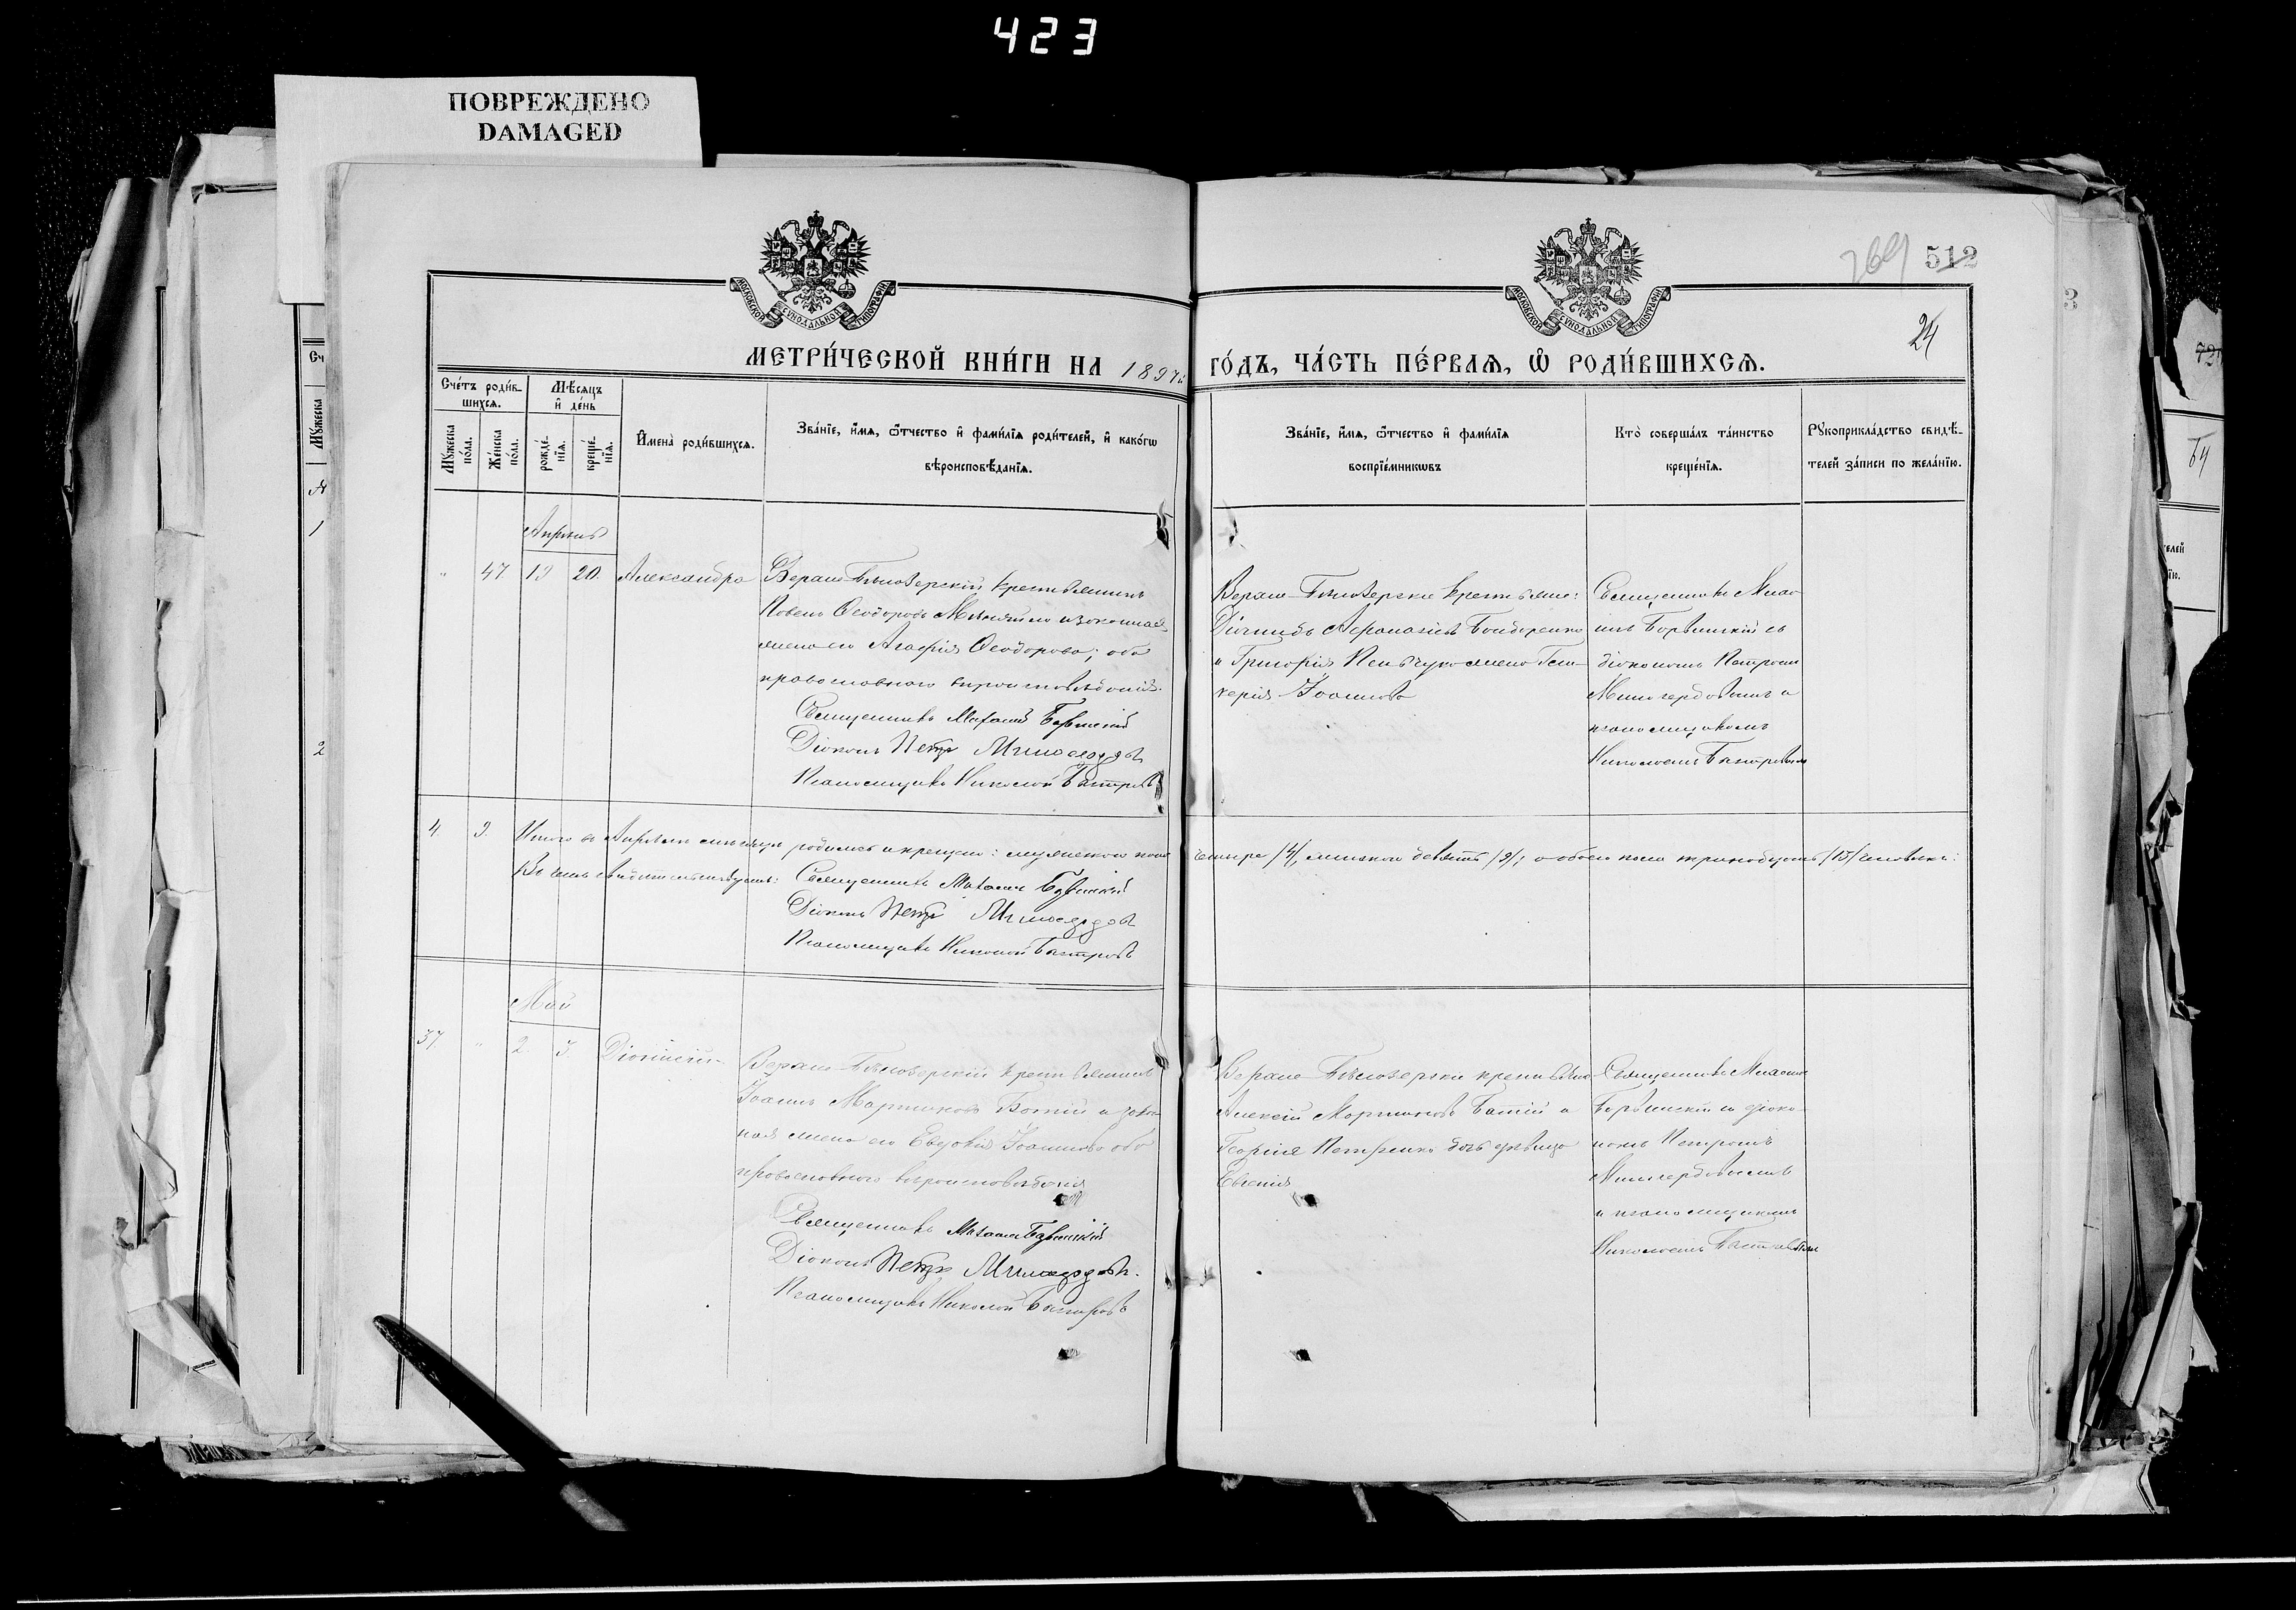 423
ПОВРЕЖДЕНО
DAMAGED
269 512
24
МОСКОВСКОЙ СѴНОДАЛЬНОЙ ТИПОГРАФІИ
МОСКОВСКОЙ СѴНОДАЛЬНОЙ ТИПОГРАФІИ
МЕТРИ́ЧЕСКОЙ КНИ́ГИ НА 1897й ГО́ДЪ, ЧА́СТЬ ПЕ́РВАЯ, Ѡ РОДИ́ВШИХСЯ.
Сче́тъ роди́в-
шихся.
Мѣ́сяцъ
и де́нь
Му́жеска по́ла.
Же́нска по́ла.
рожде́-
нїя.
креще́-
нїя.
Имена̀ роди́вшихся.
Зва́нїе, и́мя, ѻ́тчество и фами́лїя роди́телей, и како́гѡ
вѣроисповѣ́данїя.
Зва́нїе, и́мя, ѻ́тчество и фами́лїя
воспрїе́мникѡвъ
Кто̀ соверша́лъ та́инство
креще́нїя.
Рꙋкоприкла́дство свидѣ́-
телей за́писи по жела́нїю.
Апрѣль
" 47. 19 20. Александра
Верхне-Бѣлозерскій крестьянинъ
Павелъ Ѳеодоровъ и законная
жена его Агафія Ѳеодорова; оба
православнаго вѣроисповѣданія.
Священникъ Михаилъ
Діаконъ Петръ Милосердовъ
Псаломщикъ Николай Быстровъ
Верхне-Бѣлозерскіе крестьяне:
Афанасіевъ Бондаренко
и Григорія жена
Іоаннова
Священникъ Миха-
илъ съ
діакономъ Петромъ
Милосердовымъ и
псаломщикомъ
Николаемъ Быстровымъ
4. 9. Итого въ Апрѣлѣ мѣсяцѣ родилось и крещено: мужескаго пола четыре /4/, женскаго девять /9/; а обоего пола тринадцать /13/ человѣкъ:
Въ чемъ свидѣтельствуемъ: Священникъ Михаилъ
Діаконъ Петръ Милосердовъ
Псаломщикъ Николай Быстровъ
Май
37. " 2. 3. Діонисій
Верхне-Бѣлозерскій крестьянинъ
Іоаннъ Мартиновъ и закон-
ная жена его Евдокія Іоаннова оба
православнаго вѣроисповѣданія
Священникъ Михаилъ
Діаконъ Петръ Милосердовъ.
Псаломщикъ Николай Быстровъ
Верхне-Бѣлозерскіе крестьяне
Алексій Мартиновъ и
Георгія Петренко дочь дѣвица
Евгенія
Священникъ Михаилъ
съ діако-
номъ Петромъ
Милосердовымъ
и псаломщикомъ
Николаемъ Быстровымъ